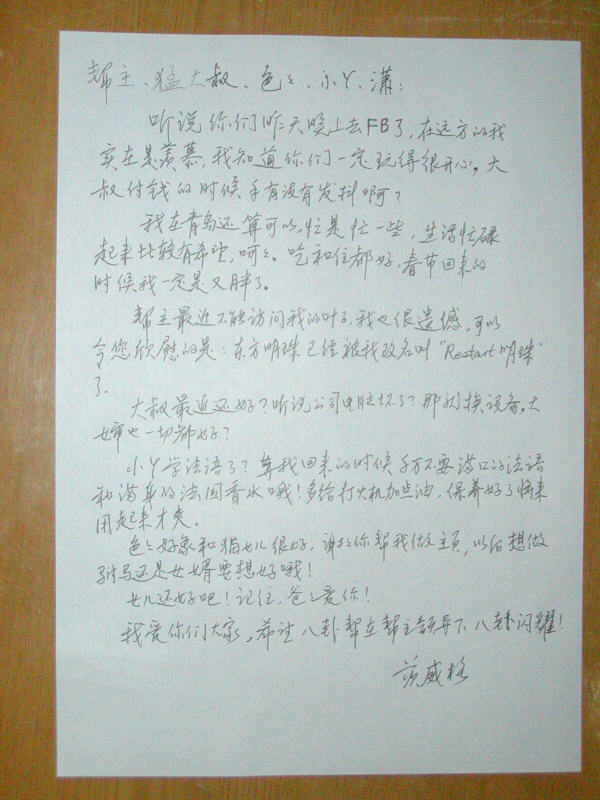 帮主、猛大叔、色々、小丫、潇：
听说你们昨天晚上去FB了，在远方的我
实在是羡慕，我知道你们一定玩得很开心，大
叔付钱的时候手有没有发抖啊？
我在青岛还算可以，忙是忙一些，生活忙碌
起来比较有希望，呵々。吃和住都好，春节回来的
时候我一定是又胖了。
帮主最近不能访问我的叶子，我也很遗憾，可以
令您欣慰的是：东方明珠已经被我改名叫“Restart明珠”
了。
大叔最近还好？听说公司电脑坏了？那别换设备，大
婶也一切都好？
小丫学法语了？等我回来的时候千万不要满口的法语
和满身的法国香水哦！多给打火机加点油，保养好了将来
用起来才爽。
色々好象和猫女儿很好，谢々你帮我做主页，以后想做
驸马还是女婿要想好哦！
女儿还好吧！记住，爸々爱你！
我爱你们大家，希望八卦帮在帮主领导下八卦闪耀！
茨威格